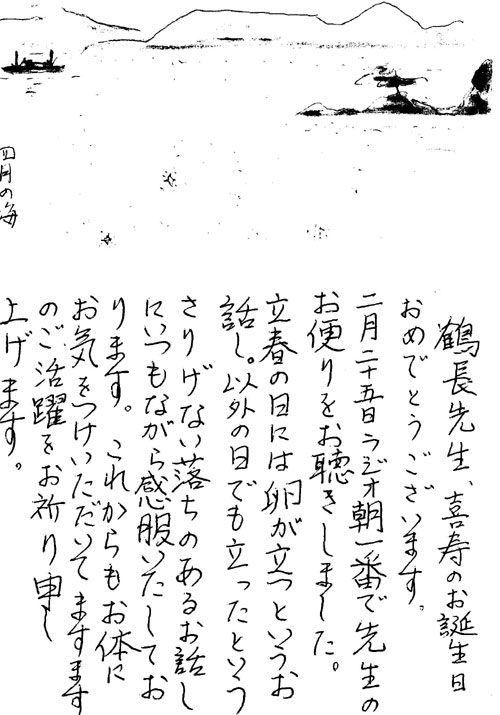 四月の海
鶴長先生、喜寿のお誕生日
おめでとうございます。
二月二十五日ラジオ朝一番で先生の
お便りをお聴きしました。
立春の日には卵が立つというお
話し。以外の日でも立ったという
さりげない落ちのあるお話し
にいつもながら感服いたしてお
ります。これからもお体に
お気をつけいただいてますます
のご活躍をお祈り申し
上げます。